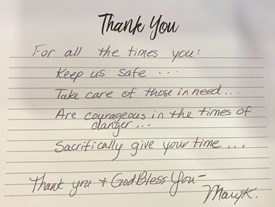 Thank You
For all the times you:
Keep us safe ...
Take care of those in need...
Are courageous in the times of
danger...
Sacrifically give your time ...
Thank you + God Bless You-
Mary K.